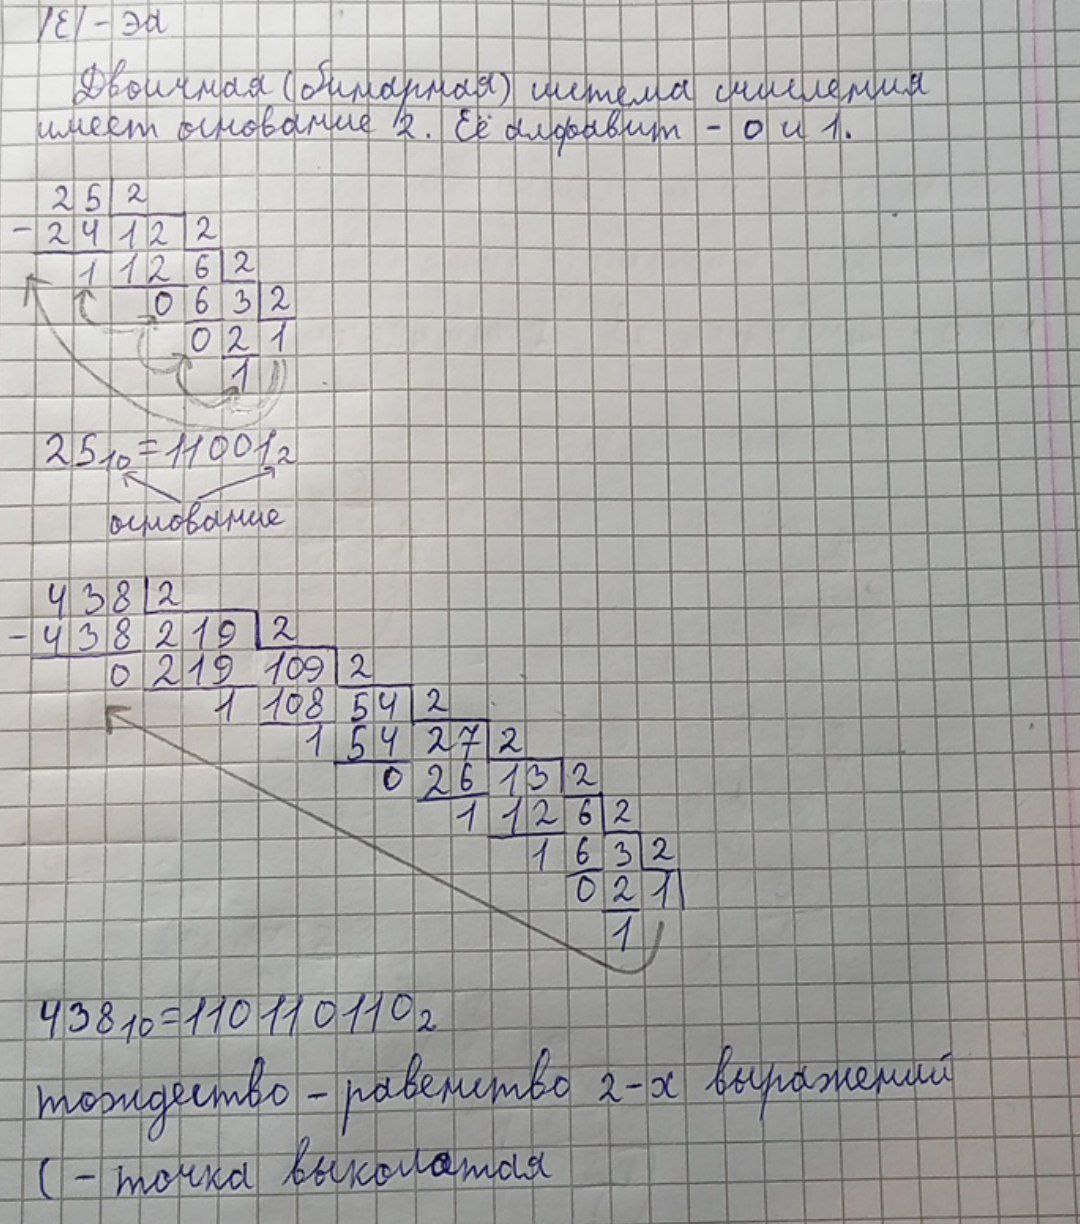 /ε/ - эа
Двоичная (бинарная) система счисления
имеет основание 2. Её алфавит - 0 и 1.
25 2
- 24 12 2
1 12 6 2
0 6 3 2
0 2 1
1
25₁₀=11001₂
основание
438 2
- 438 219 2
0 219 109 2
1 108 54 2
1 54 27 2
0 26 13 2
1 12 6 2
1 6 3 2
0 2 1
1
438₁₀=110110110₂
тождество - равенство 2-х выражений
( - точка выколотая